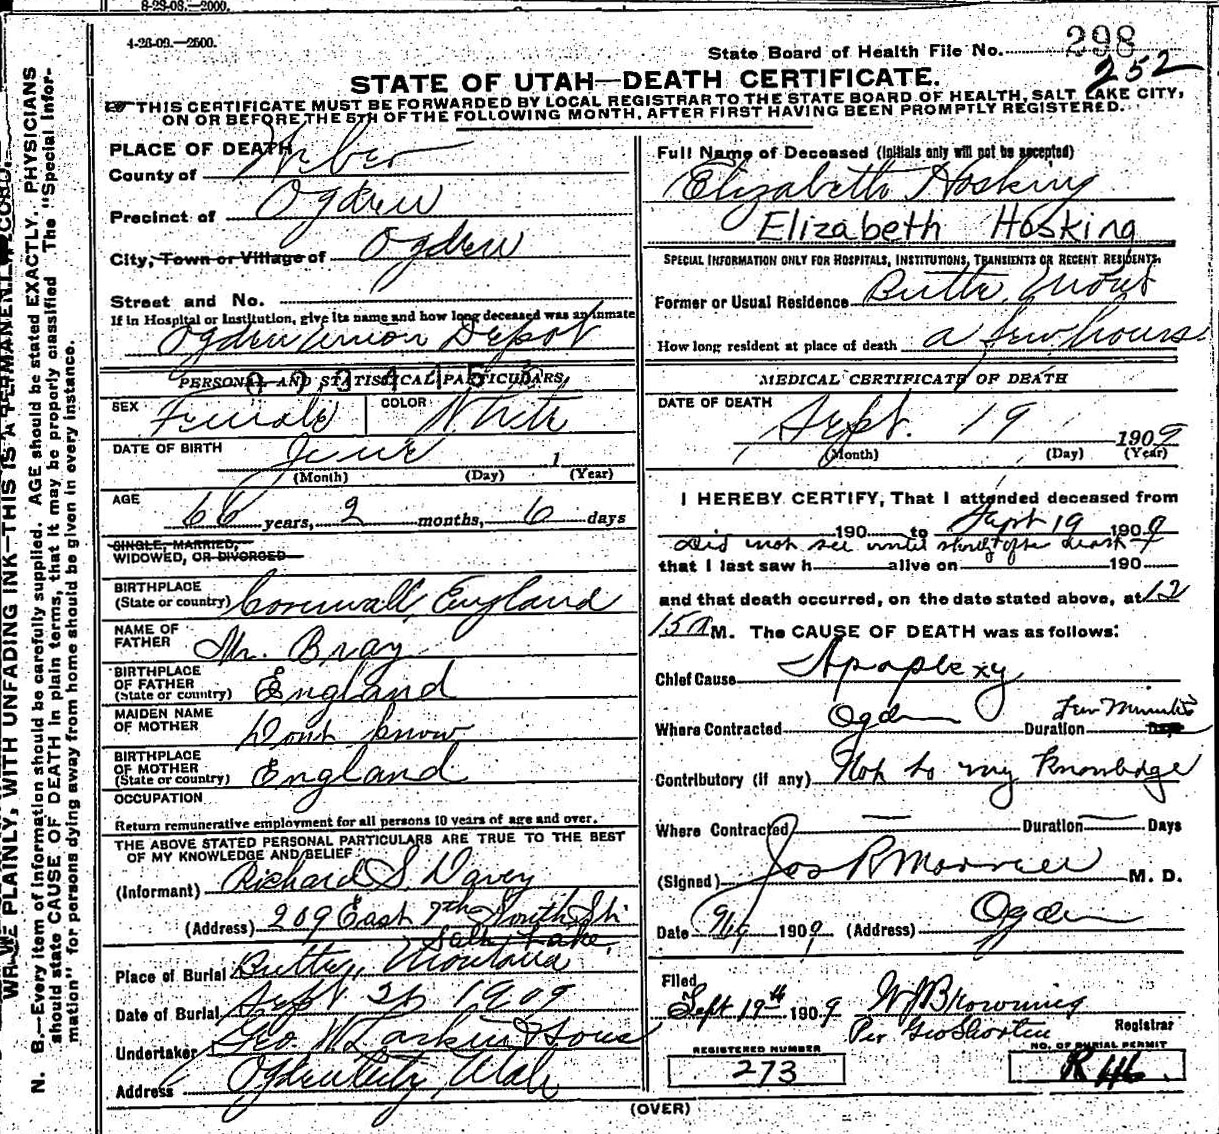 8-23-08.—2000.
4-26-09.—2500.
State Board of Health File No. 298
252
STATE OF UTAH—DEATH CERTIFICATE.
THIS CERTIFICATE MUST BE FORWARDED BY LOCAL REGISTRAR TO THE STATE BOARD OF HEALTH, SALT LAKE CITY,
ON OR BEFORE THE 5TH OF THE FOLLOWING MONTH, AFTER FIRST HAVING BEEN PROMPTLY REGISTERED.
PLACE OF DEATH
County of Weber
Precinct of Ogden
City, Town or Village of Ogden
Street and No.
If in Hospital or Institution, give its name and how long deceased was an inmate
Ogden Union Depot
PERSONAL AND STATISTICAL PARTICULARS.
SEX Female COLOR White
DATE OF BIRTH June 1
(Month) (Day) (Year)
AGE
66 years, 2 months, 6 days
SINGLE, MARRIED,
WIDOWED, OR DIVORCED
BIRTHPLACE
(State or country) Cornwall, England
NAME OF
FATHER Mr. Bray
BIRTHPLACE
OF FATHER
(State or country) England
MAIDEN NAME
OF MOTHER Dont know
BIRTHPLACE
OF MOTHER
(State or country) England
OCCUPATION
Return remunerative employment for all persons 10 years of age and over.
THE ABOVE STATED PERSONAL PARTICULARS ARE TRUE TO THE BEST
OF MY KNOWLEDGE AND BELIEF
(Informant) Richard S. Davey
(Address) 209 East 7th South St.
Salt Lake
Place of Burial Butte, Montana
Date of Burial Sept 1909
Undertaker Geo. W Larkin & Sons
Address Ogden City, Utah
Full Name of Deceased (Initials only will not be accepted)
Elizabeth Hosking
Elizabeth Hosking
SPECIAL INFORMATION ONLY FOR HOSPITALS, INSTITUTIONS, TRANSIENTS OR RECENT RESIDENTS.
Former or Usual Residence Butte, Mont
How long resident at place of death a few hours
MEDICAL CERTIFICATE OF DEATH
DATE OF DEATH
Sept. 19 1909
(Month) (Day) (Year)
I HEREBY CERTIFY, That I attended deceased from
190 to Sept 19 1909
Did not see until shortly after death
that I last saw h alive on 190
and that death occurred, on the date stated above, at 12
15 a M. The CAUSE OF DEATH was as follows:
Chief Cause Apoplexy
Where Contracted Ogden Duration Few Minutes Days
Contributory (if any) Not to my Knowledge
Where Contracted — Duration — Days
(Signed) Jos R Morrell M. D.
Date 9/19 1909 (Address) Ogden
Filed
Sept 19th 1909 W J Browning
Per Geo Shorten Registrar
REGISTERED NUMBER
273
NO. OF BURIAL PERMIT
R 46
(OVER)
WRITE PLAINLY, WITH UNFADING INK—THIS IS A PERMANENT RECORD.
N. B.—Every item of information should be carefully supplied. AGE should be stated EXACTLY. PHYSICIANS
should state CAUSE OF DEATH in plain terms, that it may be properly classified. The "Special Infor-
mation" for persons dying away from home should be given in every instance.